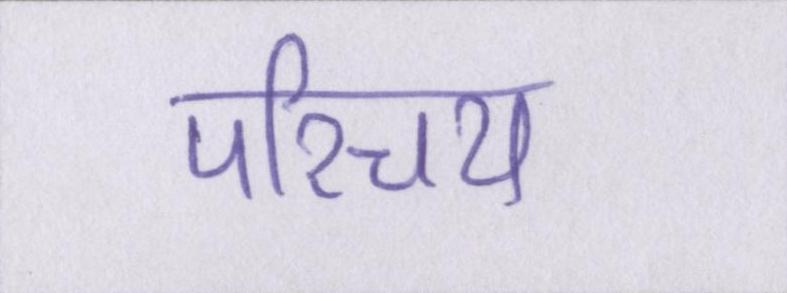 परिचय